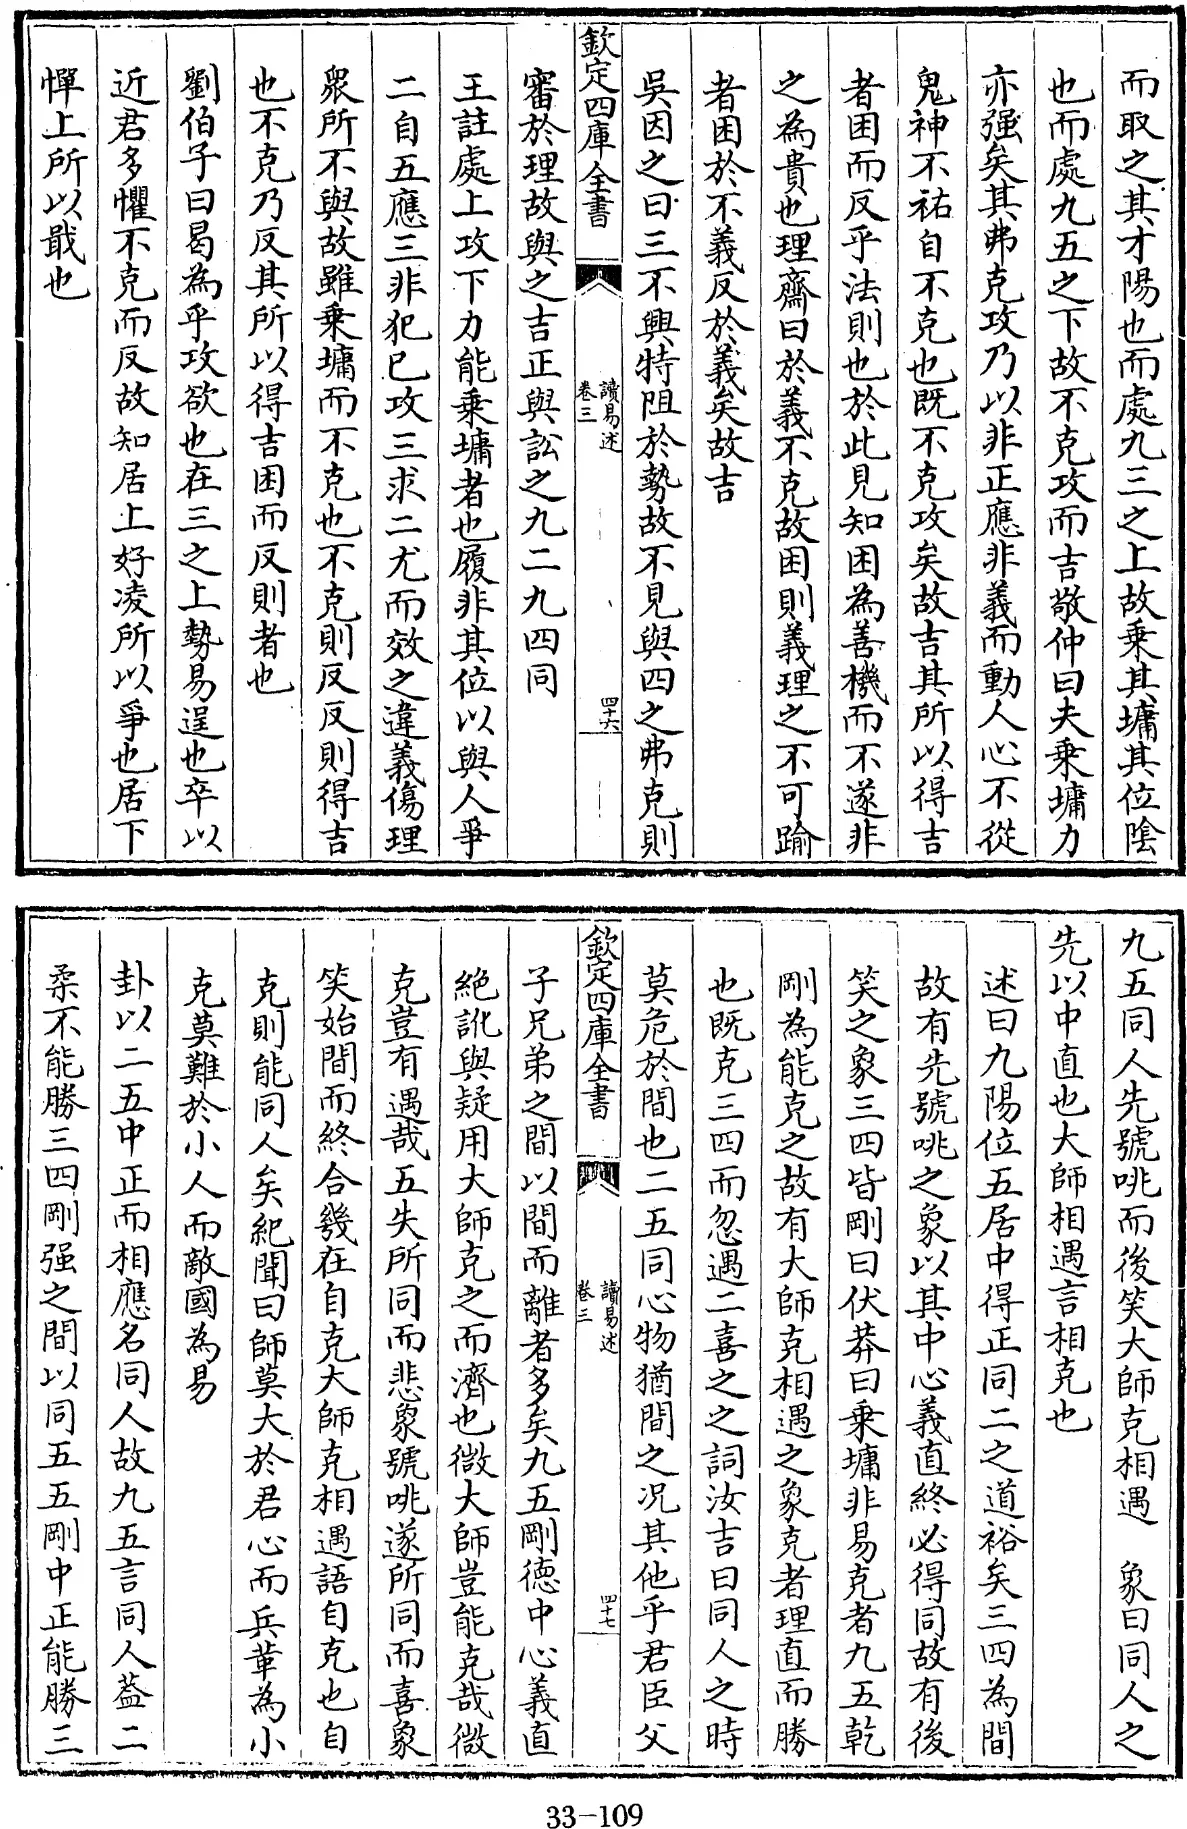 而取之其才陽也而處九三之上故乗其墉其位陰
也而處九五之下故不克攻而吉敬仲曰夫乗墉力
亦强矣其弗克攻乃以非正應非義而動人心不從
鬼神不祐自不克也既不克攻矣故吉其所以得吉
者困而反乎法則也於此見知困為善機而不遂非
之為貴也理齋曰於義不克故困則義理之不可踰
者困於不義反於義矣故吉
吳因之曰三不興特阻於勢故不見與四之弗克則
欽定四庫全書
讀易述
卷三
四十六
審於理故與之吉正與訟之九二九四同
王註處上攻下力能乗墉者也履非其位以與人爭
二自五應三非犯已攻三求二尤而效之違義傷理
衆所不與故雖乗墉而不克也不克則反反則得吉
也不克乃反其所以得吉困而反則者也
劉伯子曰曷為乎攻欲也在三之上勢易逞也卒以
近君多懼不克而反故知居上好凌所以爭也居下
憚上所以戢也
九五同人先號咷而後笑大師克相遇 象曰同人之
先以中直也大師相遇言相克也
述曰九陽位五居中得正同二之道裕矣三四為間
故有先號咷之象以其中心義直終必得同故有後
笑之象三四皆剛曰伏莽曰乗墉非易克者九五乾
剛為能克之故有大師克相遇之象克者理直而勝
也既克三四而忽遇二喜之之詞汝吉曰同人之時
莫危於間也二五同心物猶間之况其他乎君臣父
欽定四庫全書
讀易述
卷三
四十七
子兄弟之間以間而離者多矣九五剛德中心義直
絶訛與疑用大師克之而濟也微大師豈能克哉微
克豈有遇哉五失所同而悲象號咷遂所同而喜象
笑始間而終合幾在自克大師克相遇語自克也自
克則能同人矣紀聞曰師莫大於君心而兵革為小
克莫難於小人而敵國為易
卦以二五中正而相應名同人故九五言同人葢二
柔不能勝三四剛强之間以同五五剛中正能勝三
33-109